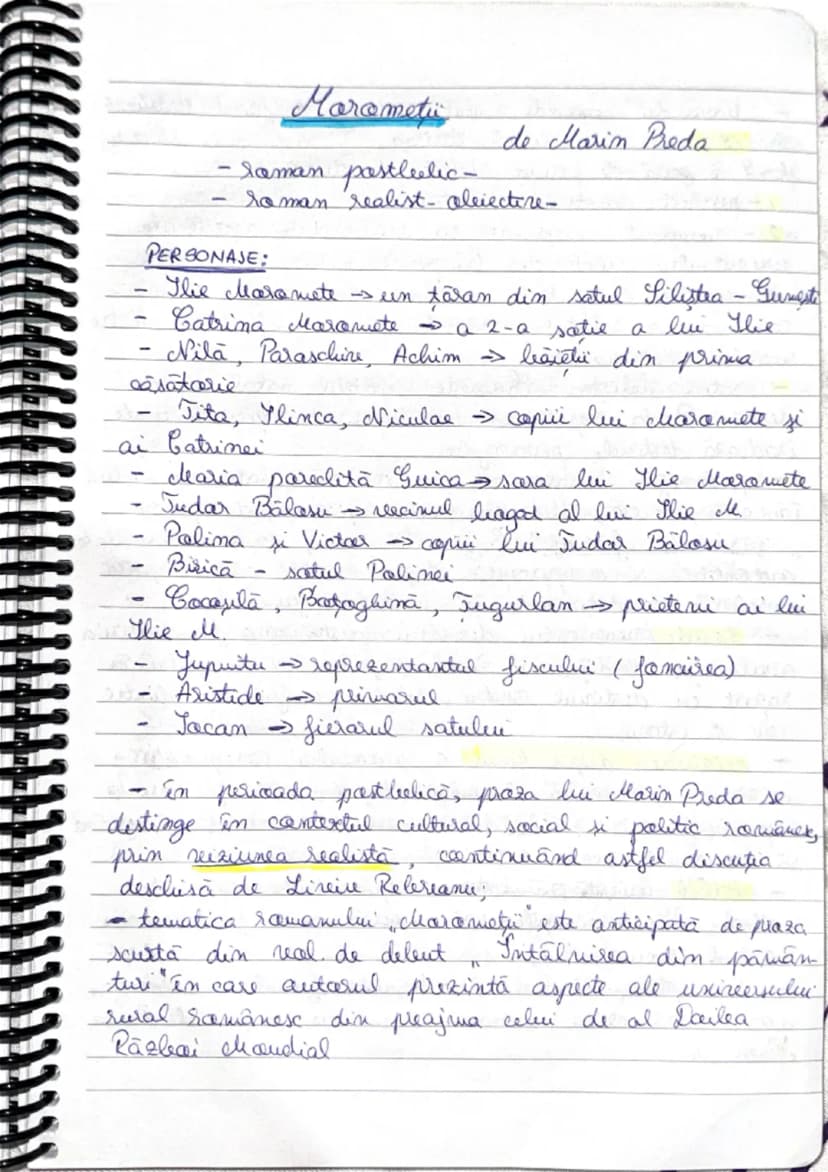 Moromeții
de Marin Preda
- roman postbelic -
- roman realist - obiectiv -
PERSONAJE:
- Ilie Moromete → un țăran din satul Siliștea - Gumești
- Catrina Moromete → a 2-a soție a lui Ilie
- Nilă, Paraschiv, Achim → băieții din prima
căsătorie
- Tita, Ilinca, Niculae → copiii lui Moromete și
ai Catrinei
- Maria poreclită Guica → sora lui Ilie Moromete
- Tudor Bălosu → vecinul bogat al lui Ilie M.
- Polina și Victor → copiii lui Tudor Bălosu
- Birică - soțul Polinei
- Cocoșilă, Boțoghină, Țugurlan → prietenii ai lui
Ilie M.
- Jupuitu → reprezentantul fiscului (fonciirea)
- Aristide → primarul
- Iocan → fierarul satului
- în perioada postbelică, proza lui Marin Preda se
distinge în contextul cultural, social și politic românesc,
prin viziunea realistă, continuând astfel discuția
deschisă de Liviu Rebreanu;
- tematica romanului „Moromeții" este anticipată de proza
scurtă din vol. de debut „Întâlnirea din pămân-
turi" în care autorul prezintă aspecte ale universului
rural românesc din preajma celui de al Doilea
Război Mondial